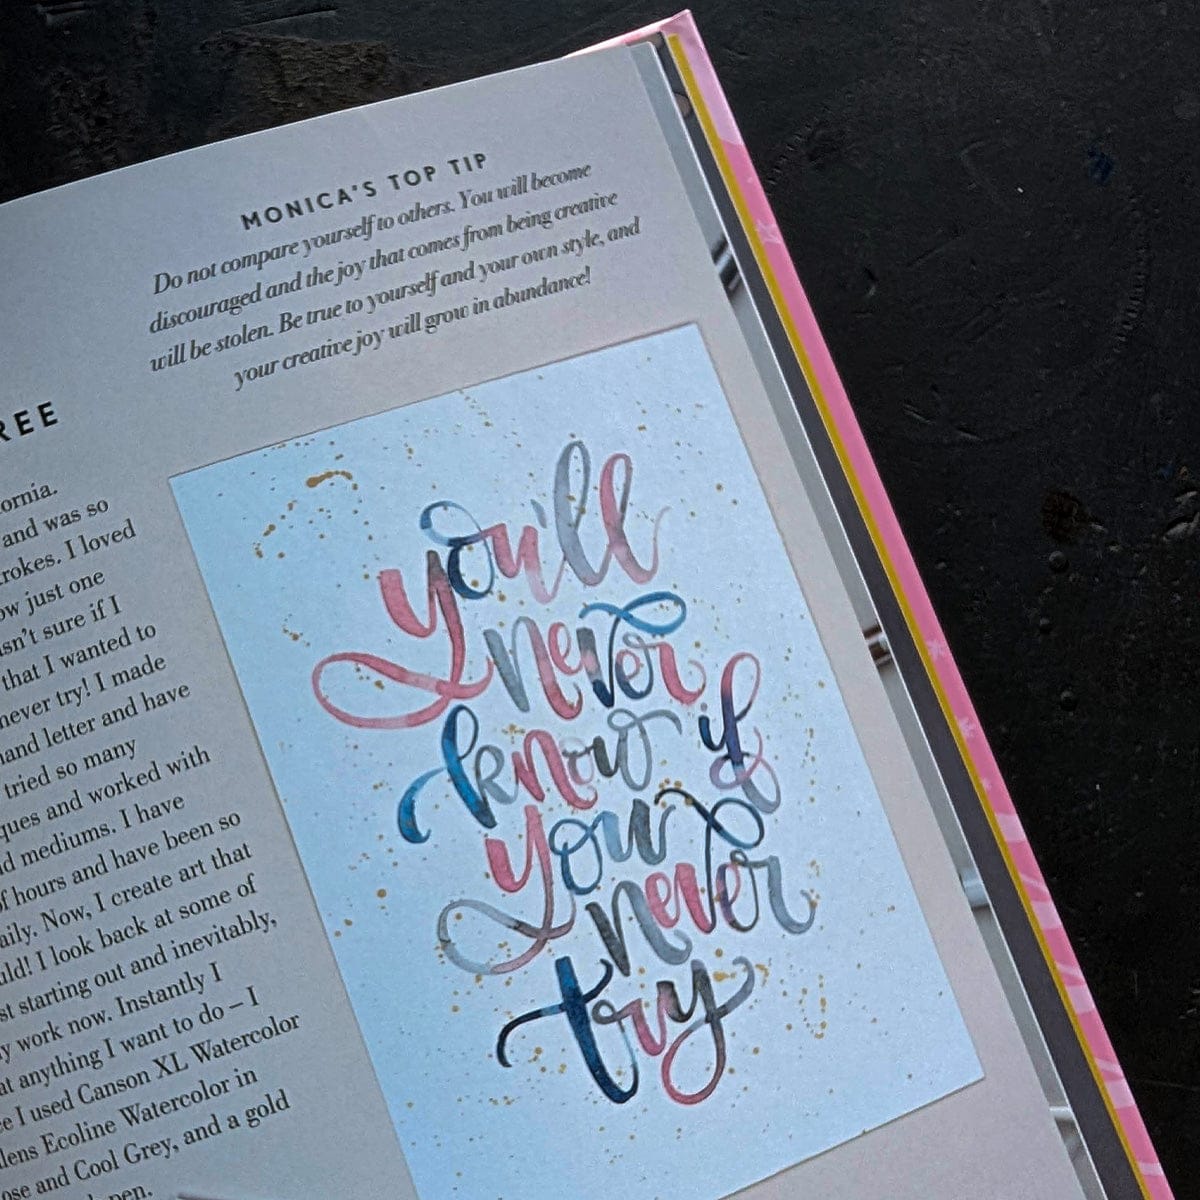 MONICA'S TOP TIP
Do not compare yourself to others. You will become
discouraged and the joy that comes from being creative
will be stolen. Be true to yourself and your own style, and
your creative joy will grow in abundance!
REE
ornia.
and was so
rokes. I loved
ow just one
asn't sure if I
that I wanted to
never try! I made
hand letter and have
tried so many
ques and worked with
d mediums. I have
f hours and have been so
aily. Now, I create art that
uld! I look back at some of
st starting out and inevitably,
y work now. Instantly I
at anything I want to do – I
e I used Canson XL Watercolor
lens Ecoline Watercolor in
ose and Cool Grey, and a gold
pen.
you'll
never
know if
you
never
try